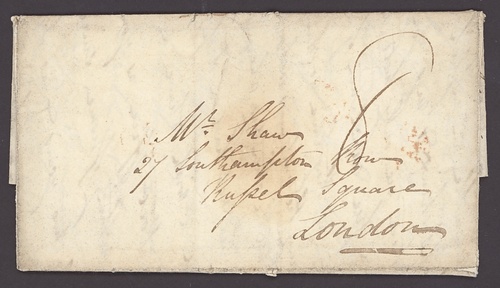 8
Mr. Shaw
27 Southampton Row
Russel Square
London